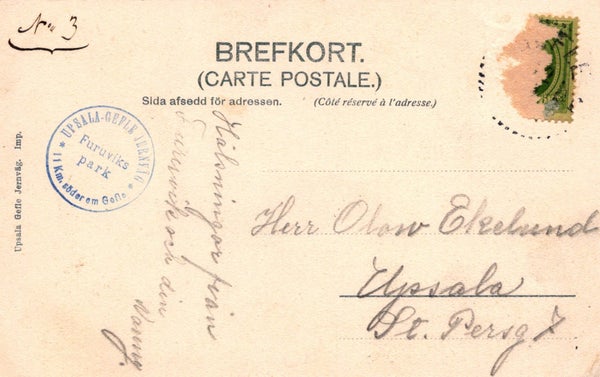 No 3
BREFKORT.
(CARTE POSTALE.)
Sida afsedd för adressen.
(Côté réservé à l'adresse.)
UPSALA-GEFLE JERNVÄG
Furuviks
park
11 Km. söder om Gefle
Upsala Gefle Jernväg. Imp.
Hälsningar från
Furuvik och din
Nanny.
Herr Olow Ekelund
Upsala
St. Persg 7